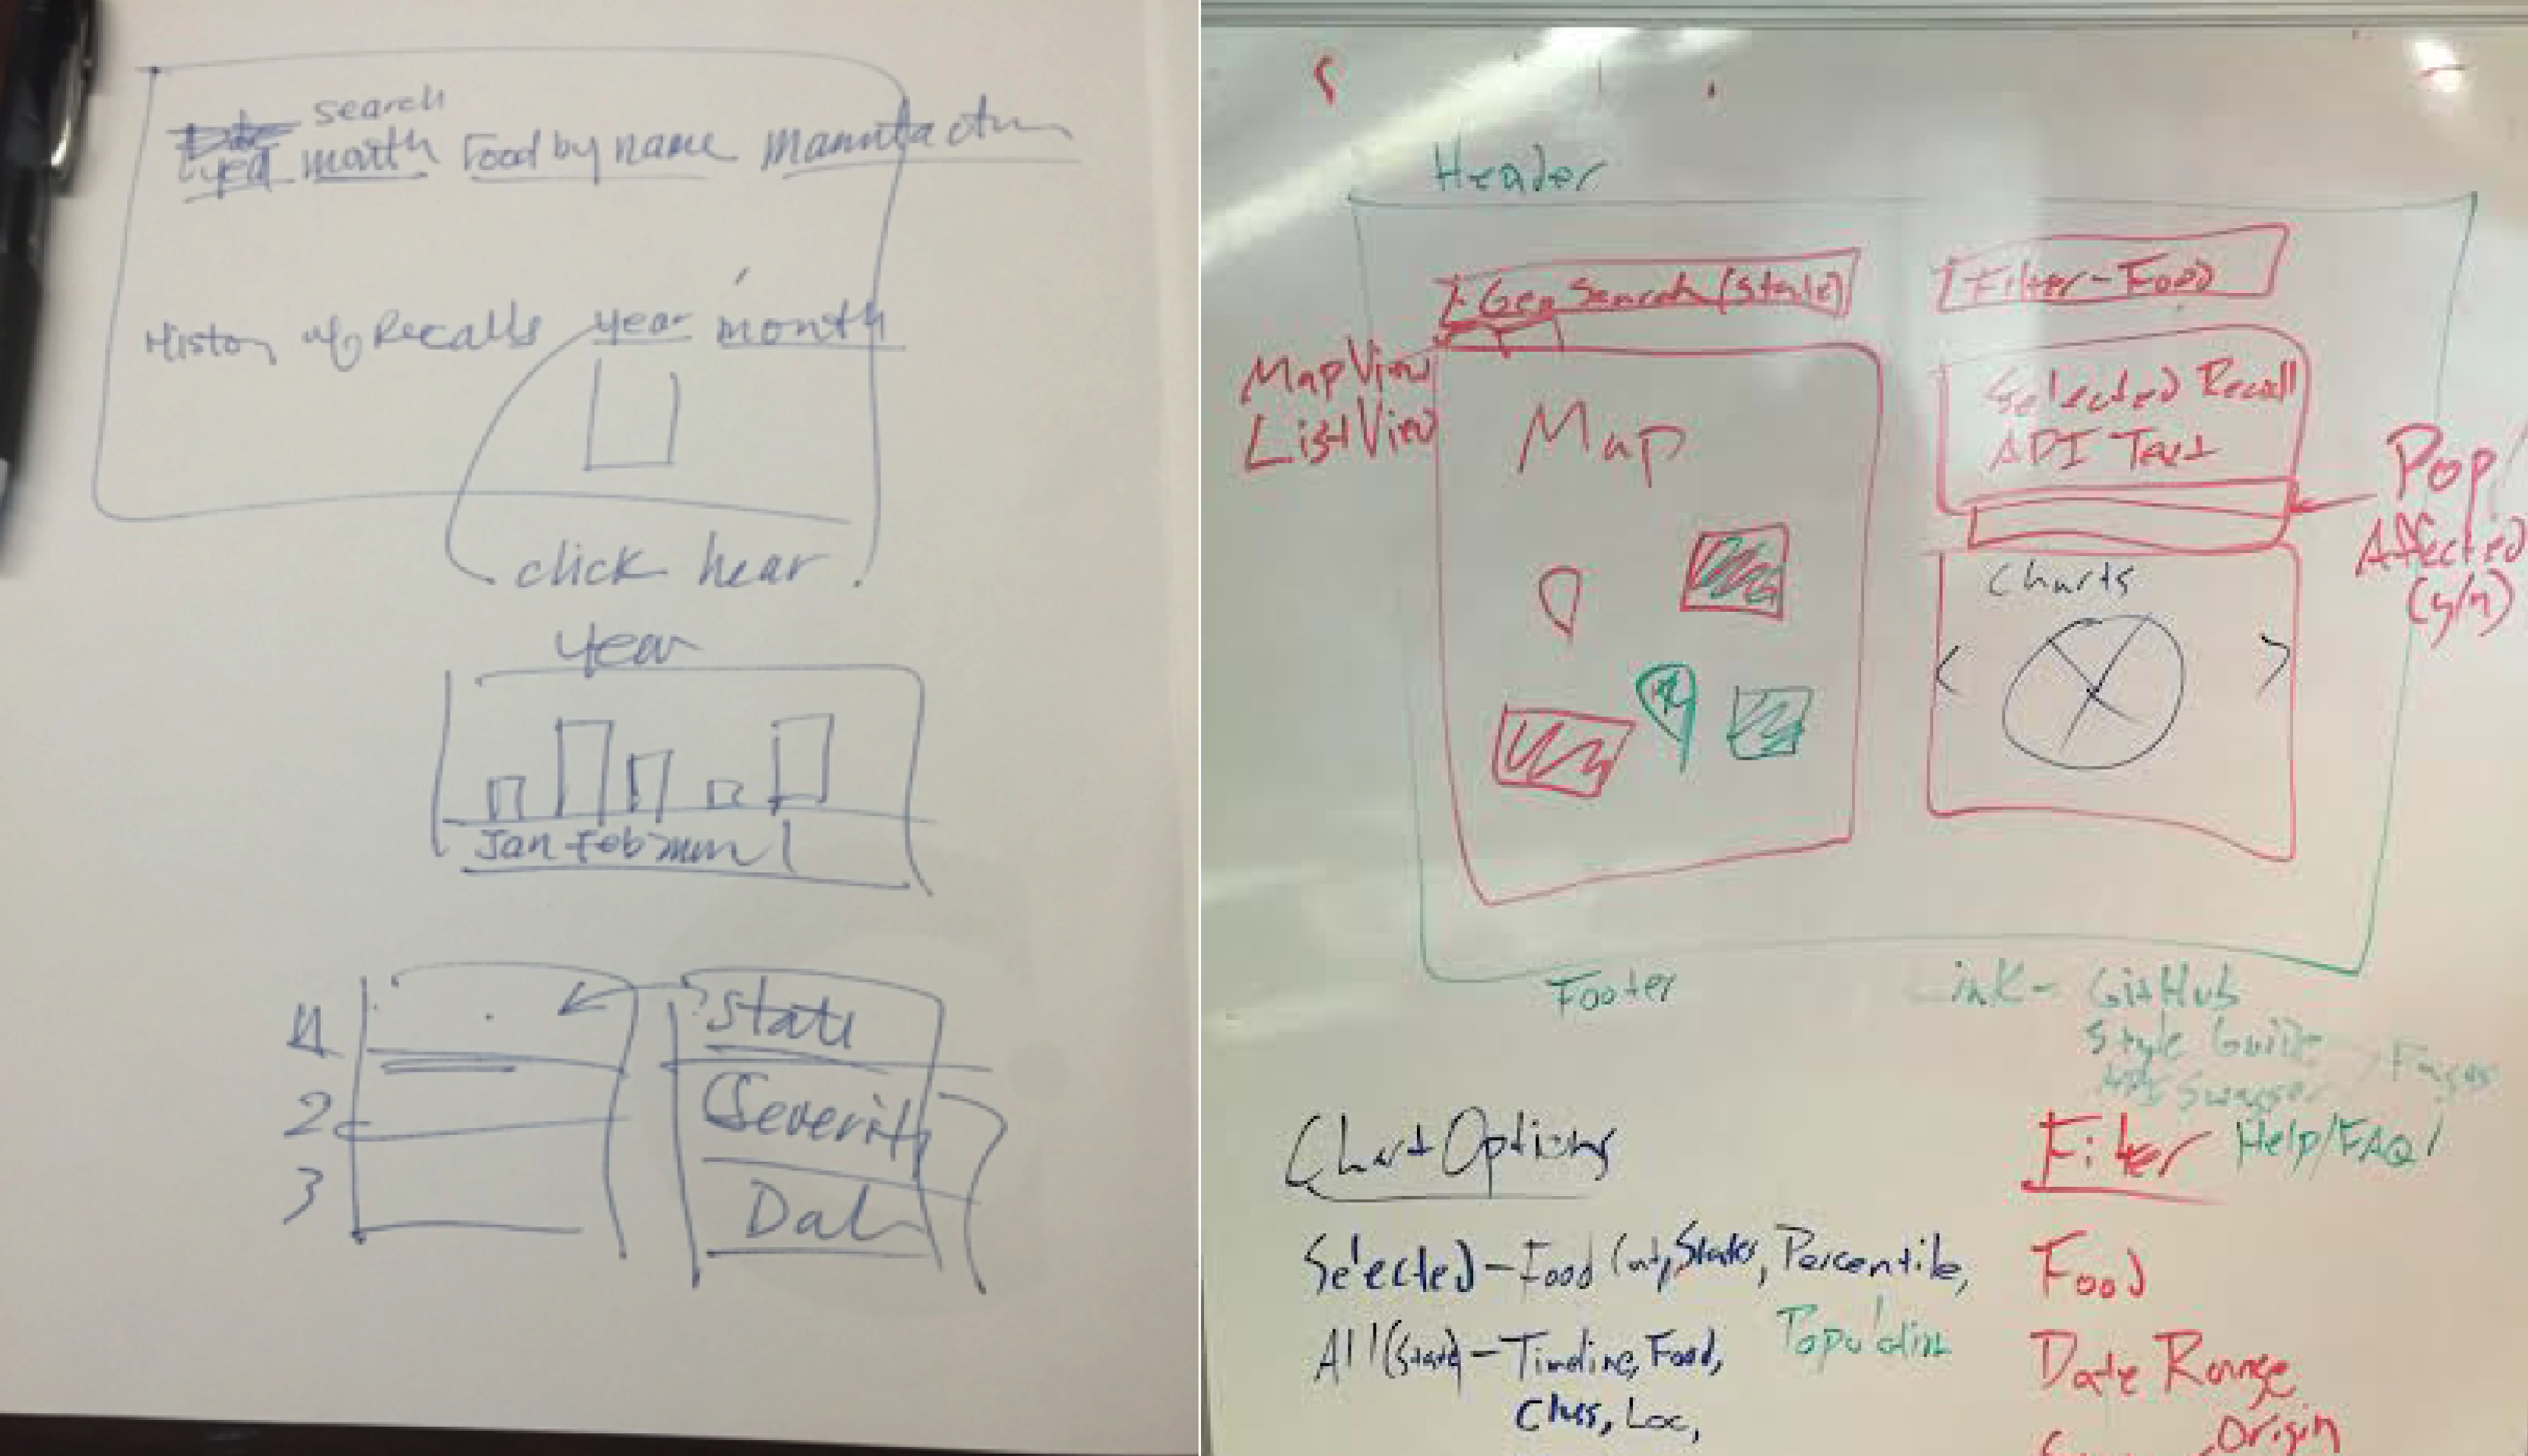 search
year month Food by name
History of Recalls year month
click hear
year
Jan Feb
1
2
3
State
Severity
Header
Geo Search (State)
Filter-Food
Map View
List View
Map
Selected Recall
API Text
Pop/
Affected
(y/n)
Charts
< >
Footer
Link - GitHub
Style Guide
API Swagger
Help/FAQ
Chart Options
Selected - Food Cnt, States, Percentile,
Population
All (State) - Timeline, Food,
Class, Loc,
Filter
Food
Date Range
Origin